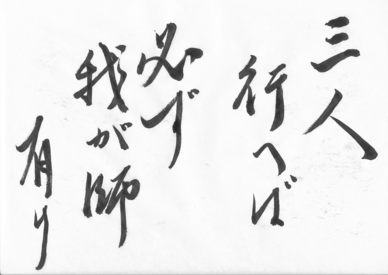 三人
行へば
必ず
我が師
有り